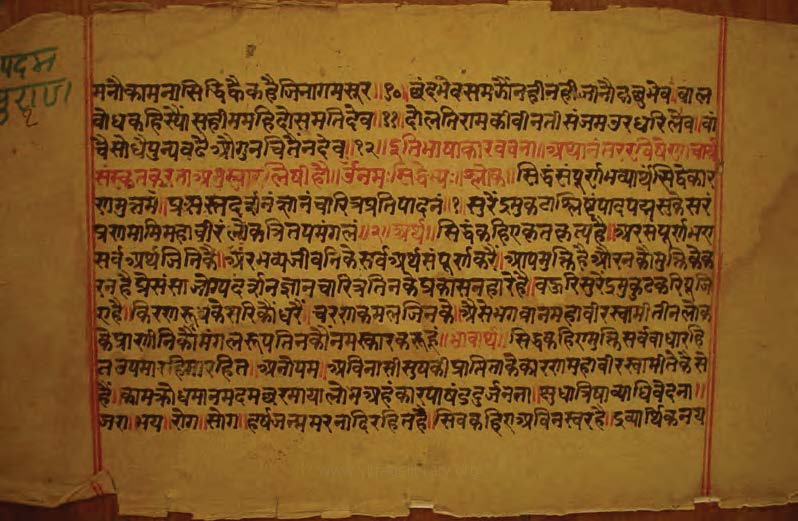 पदम
पुराण
१
मनौकामनासिद्धिकैकहैजिनागमसूर॥१०॥छंदभेदसमझौंनहीनहीजानौकछुभेव॥बाल
बोधकहिस्यौंसहीममहिदोसमतिदेव॥११॥दौलतिरामकीवीनतीसंजमउरधरिलेव॥वां
चैसोधैपुन्यबढैऔगुनचितैनदेव॥१२॥इतिभाषाकारवचना॥अथानंतररविषेणाचार्य
संस्कृतकरताअनुस्वारलिषीहौ॥ॐनमःसिद्धेभ्यः॥श्लोक॥सिद्धंसंपूर्णभव्यार्थंसिद्धेःकार
णमुत्तमं॥प्रसस्तदर्शनज्ञानचारित्रप्रतिपादनं॥१॥सुरेंद्रमुकटाश्लिष्टपादपद्मसुकेसरं
प्रणमामिमहावीरंलोकत्रितयमंगलं॥२॥अर्थ॥सिद्धकहिएकृतकृत्यहै॥अरसंपूर्णभए
सर्वअर्थजिनिकै॥अरभव्यजीवनिकेसर्वअर्थसंपूर्णकरें॥आपमुक्तिहैऔरनकौंमुक्तिकेक
रनहैऐसेसंसाजोग्यदर्शनज्ञानचारित्रतिनकेप्रकासनहारेहै॥बऊरिसुरेंद्रमुकुटकरिपूजि
एहै॥किरणरूपकेसरिकौंधरें॥चरणकमलजिनके॥ऐसेभगवानमहावीरस्वामीतीनलोक
केप्राणीनिकौंमंगलरूपतिनकौंनमस्कारकरूहूं॥भावार्थ॥सिद्धकहिएमुक्तिसर्वबाधारहि
तउपमारहित॥अनोपम॥अविनासीसुषकीप्राप्तिताकेकारणमहावीरस्वामीतेकैसे
हैं॥कामक्रोधमानमदमछरमायालोभअहंकारपाषंडदुर्जनता॥क्षुधात्रिषाव्याधिवेदना॥
जरा॥भय॥रोग॥सोग॥हर्षजन्ममरनादिरहितहैं॥सिवकहिएअविनस्वरहै॥द्रव्यार्थिकनय